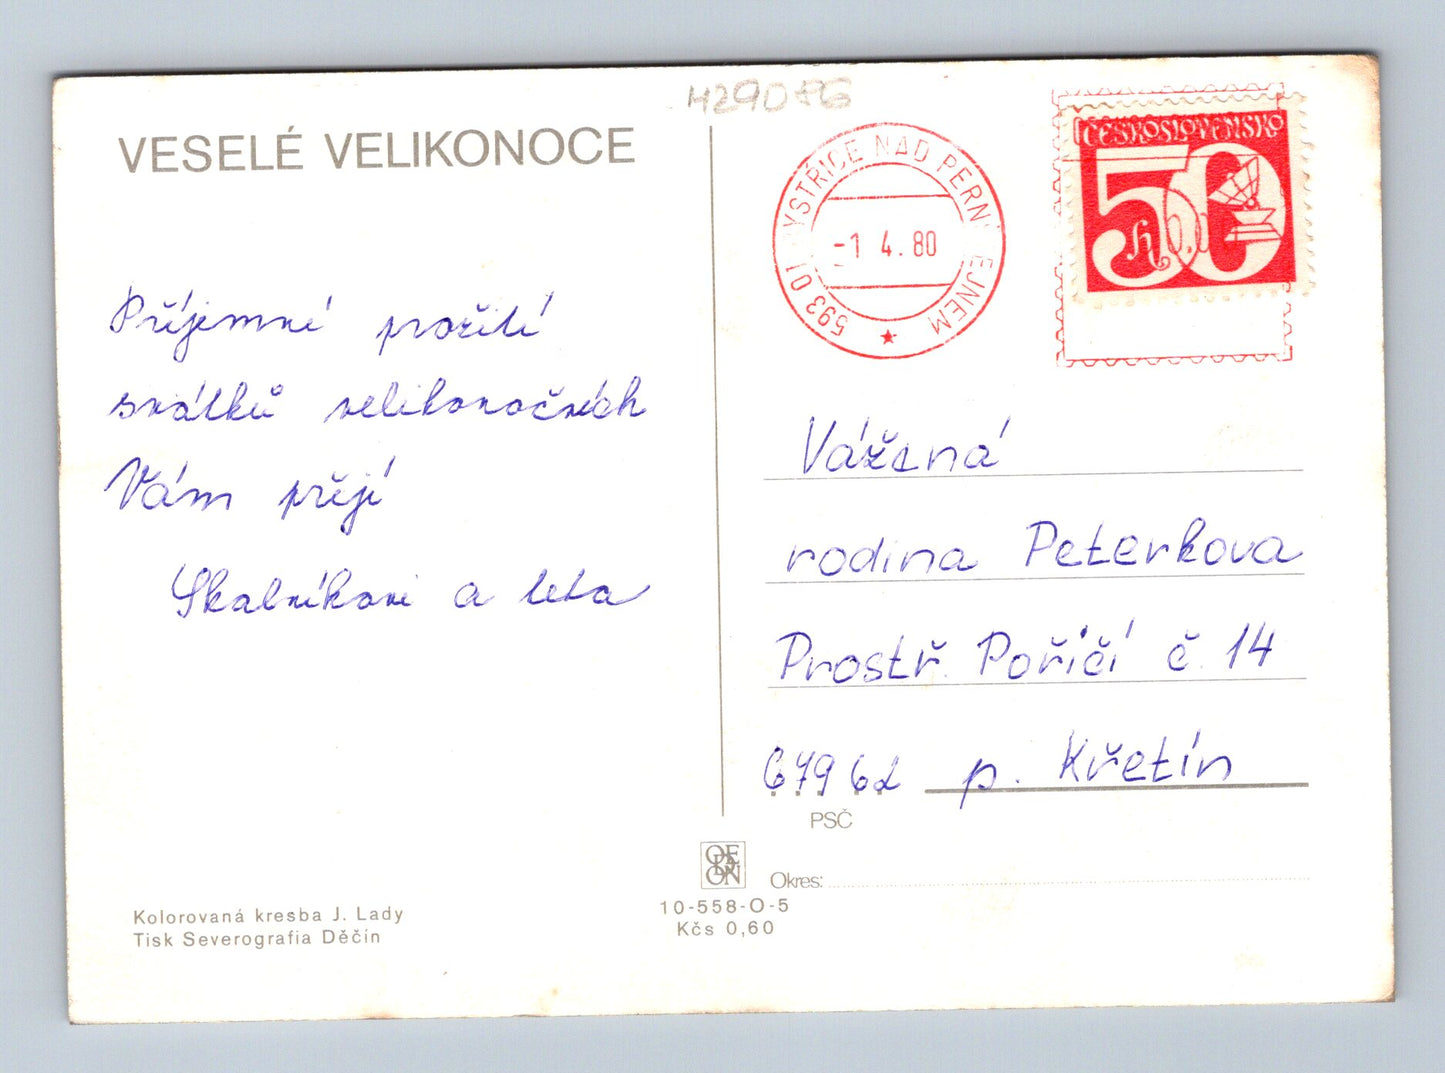 H290FG
VESELÉ VELIKONOCE
593 01 BYSTŘICE NAD PERNŠTEJNEM
-1 4. 80
ČESKOSLOVENSKO
50 h
Příjemné prožití
svátků velikonočních
Vám přejí
Skalníkovi a teta
Vážená
rodina Peterkova
Prostř. Poříčí č. 14
679 62 p. Křetín
PSČ
Okres:
ODEON
10-558-O-5
Kčs 0,60
Kolorovaná kresba J. Lady
Tisk Severografia Děčín